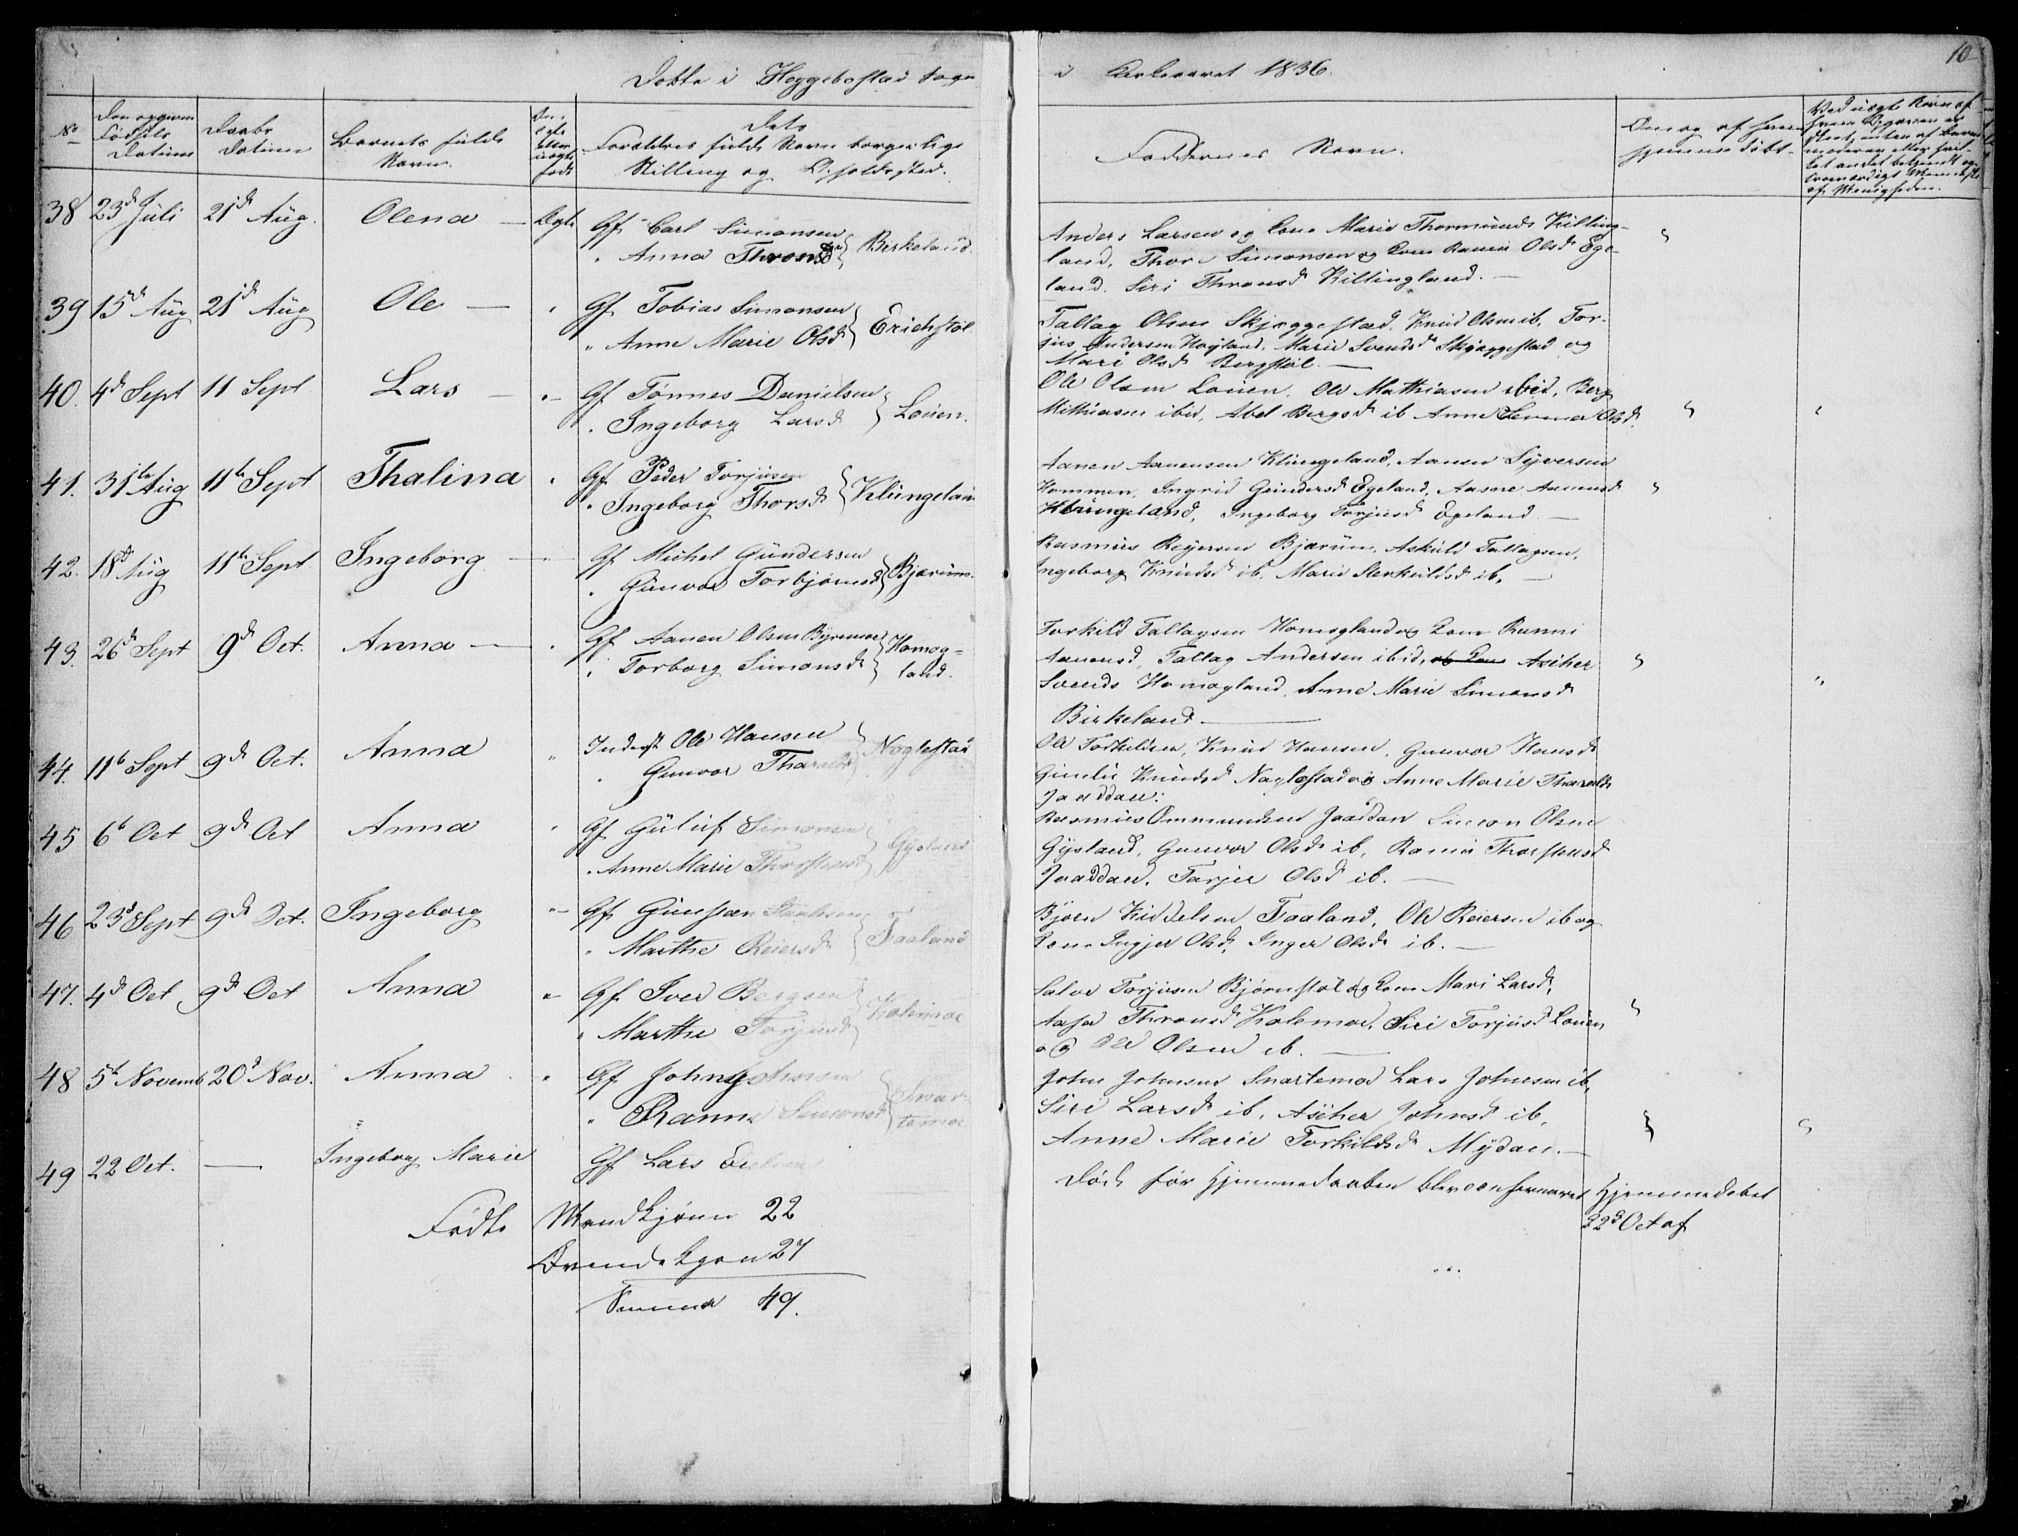 Døbte i Heggebostad Sogn i Kirkeaaret 1836.
10
No
Den opgivne Fødsels Datum
Daabs Datum
Barnets fulde Navn.
Om ægte eller uægte født
Dets Forældres fulde Navn borgerlige Stilling og Opholdssted.
Faddernes Navn.
Om og af hvem hjemme døbt
38 23d Juli 21d Aug. Olena — Ægte Gf. Carl Simonsen
" Anna Throndsd Birkeland.
Anders Larsen og Kone Marie Thormunds Killing-
land, Thor Simonsen og Kone Rannie Olsd Ege-
land. Siri Thronsd Killingland. —
39 15d Aug 21d Aug Ole — " Gf. Tobias Simonsen
" Anne Marie Olsd Erichstøl
Tallag Olsen Skjeggestad, Knud Olsen ib, Tor-
jus Andersen Høyland, Marie Svendsd Skjæggestad og
Mari Olsd Bergstøl. —
40. 4d Sept 11 Sept Lars — " Gf Tønnes Danielsen
" Ingeborg Larsd Louen.
Ole Olsen Louen, Ole Mathiasen ibid, Berg
Mathiasen ibid, Abel Bergsd ib Anne Olsd.
41. 31te Aug 11te Sept Thalina " Gf. Peder Torjusen
" Ingeborg Thorsd Klungelan
Aanen Aanensen Klungeland, Aanen Syversen
Hommen, Ingrid Gundersd Egeland, Aasne Aanensd
Klungeland, Ingeborg Torjusd Egeland. —
42. 18d Aug 11te Sept Ingeborg — Gf. Michel Gundersen
" Gunvor Torbjørnsd Bjærum.
Rasmus Reijersen Bjærum, Askild Tallagsen,
Ingeborg Knudsd ib, Marie Sterkuldsd ib. —
43. 26d Sept 9d Oct. Anna — " Gf. Aanen Olsen Byremoe
" Torborg Simonsd Homog-
land.
Torkild Tallagsen Homogland og Kone Ranni
Aanensd, Tallag Andersen ibid, Asiher
Svends Homogland, Anne Marie Simonsd
Birkeland —
44. 11te Sept 9d Oct. Anna " Inderst Ole Hansen
" Gunvor Tharaldsd Noglestad
Ole Torkildsen, Knud Hansen, Gunvor Hansd
Gunlie Knudsd Naglestad og Anne Marie Tharalds
Jaaddan.
45 6te Oct 9d Oct Anna " Gf. Guluf Simonsen
" Anne Marie Thorstensd Gysland
Rasmus Ommundsen Jaaddan Simon Olsen
Gysland, Gunvor Olsd ib, Ranni Thorstensd
Jaaddan, Tarjer Olsd ib. —
46 23d Sept 9d Oct. Ingeborg " Gf. Gunstan
" Marthe Reiersd Faaland
Bjørn Faaland, Ole Reiersen ib og
Kone Ingjer Olsd, Inger Olsd ib. —
47. 4d Oct 9d Oct Anna " Gf. Iver Bergsen
" Marthe Torjusd Kolemoe
Salve Torjusen Bjørnstøl og Kone Mari Larsd,
Aasa Thronsd Kolemoe, Siri Torjusd Louen
og Ole Olsen ib. —
48 5te Novemb 20d Nov. Anna " Gf John Johnsen
" Ranni Simonsd Snar-
temoe
John Johnsen Snartemoe Lars Johnsen ib,
Siri Larsd ib, Asiher Johnsd ib,
Anne Marie Torkildsd Mydan. —
49 22 Oct. — Ingeborg Marie Gf. Lars
Død før Hjemmedaaben blev confirmeret Hjemmedøbt
22d Oct af
Fødte Mandkjøn 22
Qvindekjøn 27
Summa 49.